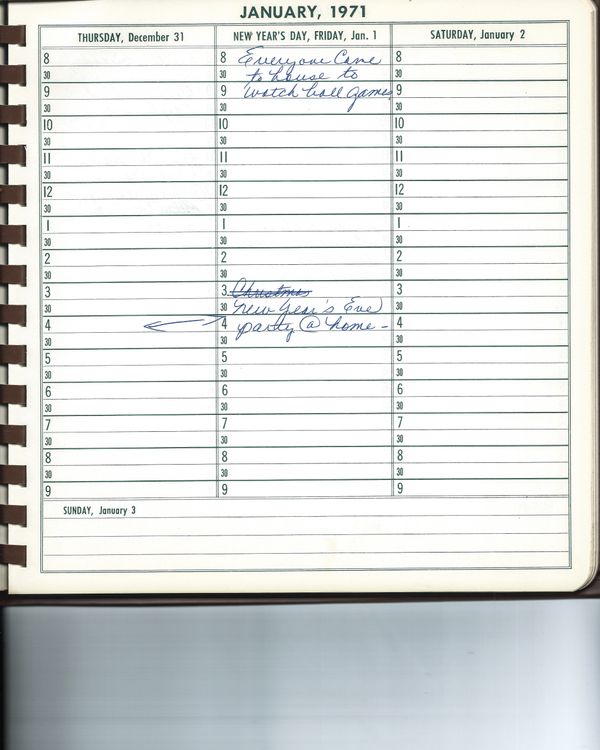 JANUARY, 1971
THURSDAY, December 31
8
30
9
30
10
30
11
30
12
30
1
30
2
30
3
30
4
30
5
30
6
30
7
30
8
30
9
NEW YEAR'S DAY, FRIDAY, Jan. 1
8 Everyone Came
30 to house to
9 watch ball games
30
10
30
11
30
12
30
1
30
2
30
3 Christmas
30 New Year's Eve
4 party @ home -
30
5
30
6
30
7
30
8
30
9
SATURDAY, January 2
8
30
9
30
10
30
11
30
12
30
1
30
2
30
3
30
4
30
5
30
6
30
7
30
8
30
9
SUNDAY, January 3